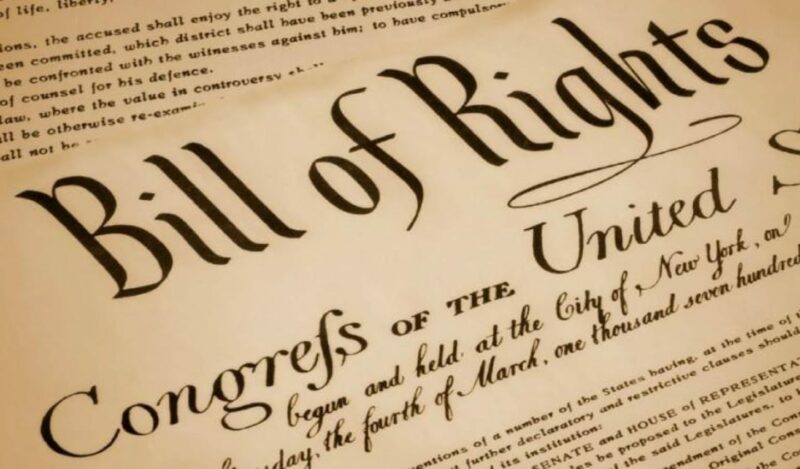 of life, liberty,
ions, the accused shall enjoy the right to a
een committed, which district shall have been previously a
be confronted with the witnesses against him; to have compulsor
of counsel for his defence.
law, where the value in controversy shall
ll be otherwise re-exami
all not be
Bill of Rights
Congreſs OF THE United S
begun and held at the City of New York, on
sday, the fourth of March, one thousand seven hundred
entions of a number of the States having, at the time of
further declaratory and restrictive clauses should
its institution:
SENATE and HOUSE of REPRESENTA
be proposed to the Legislature
the said Legislatures, to
endment of the Con
Original Cons
the Co